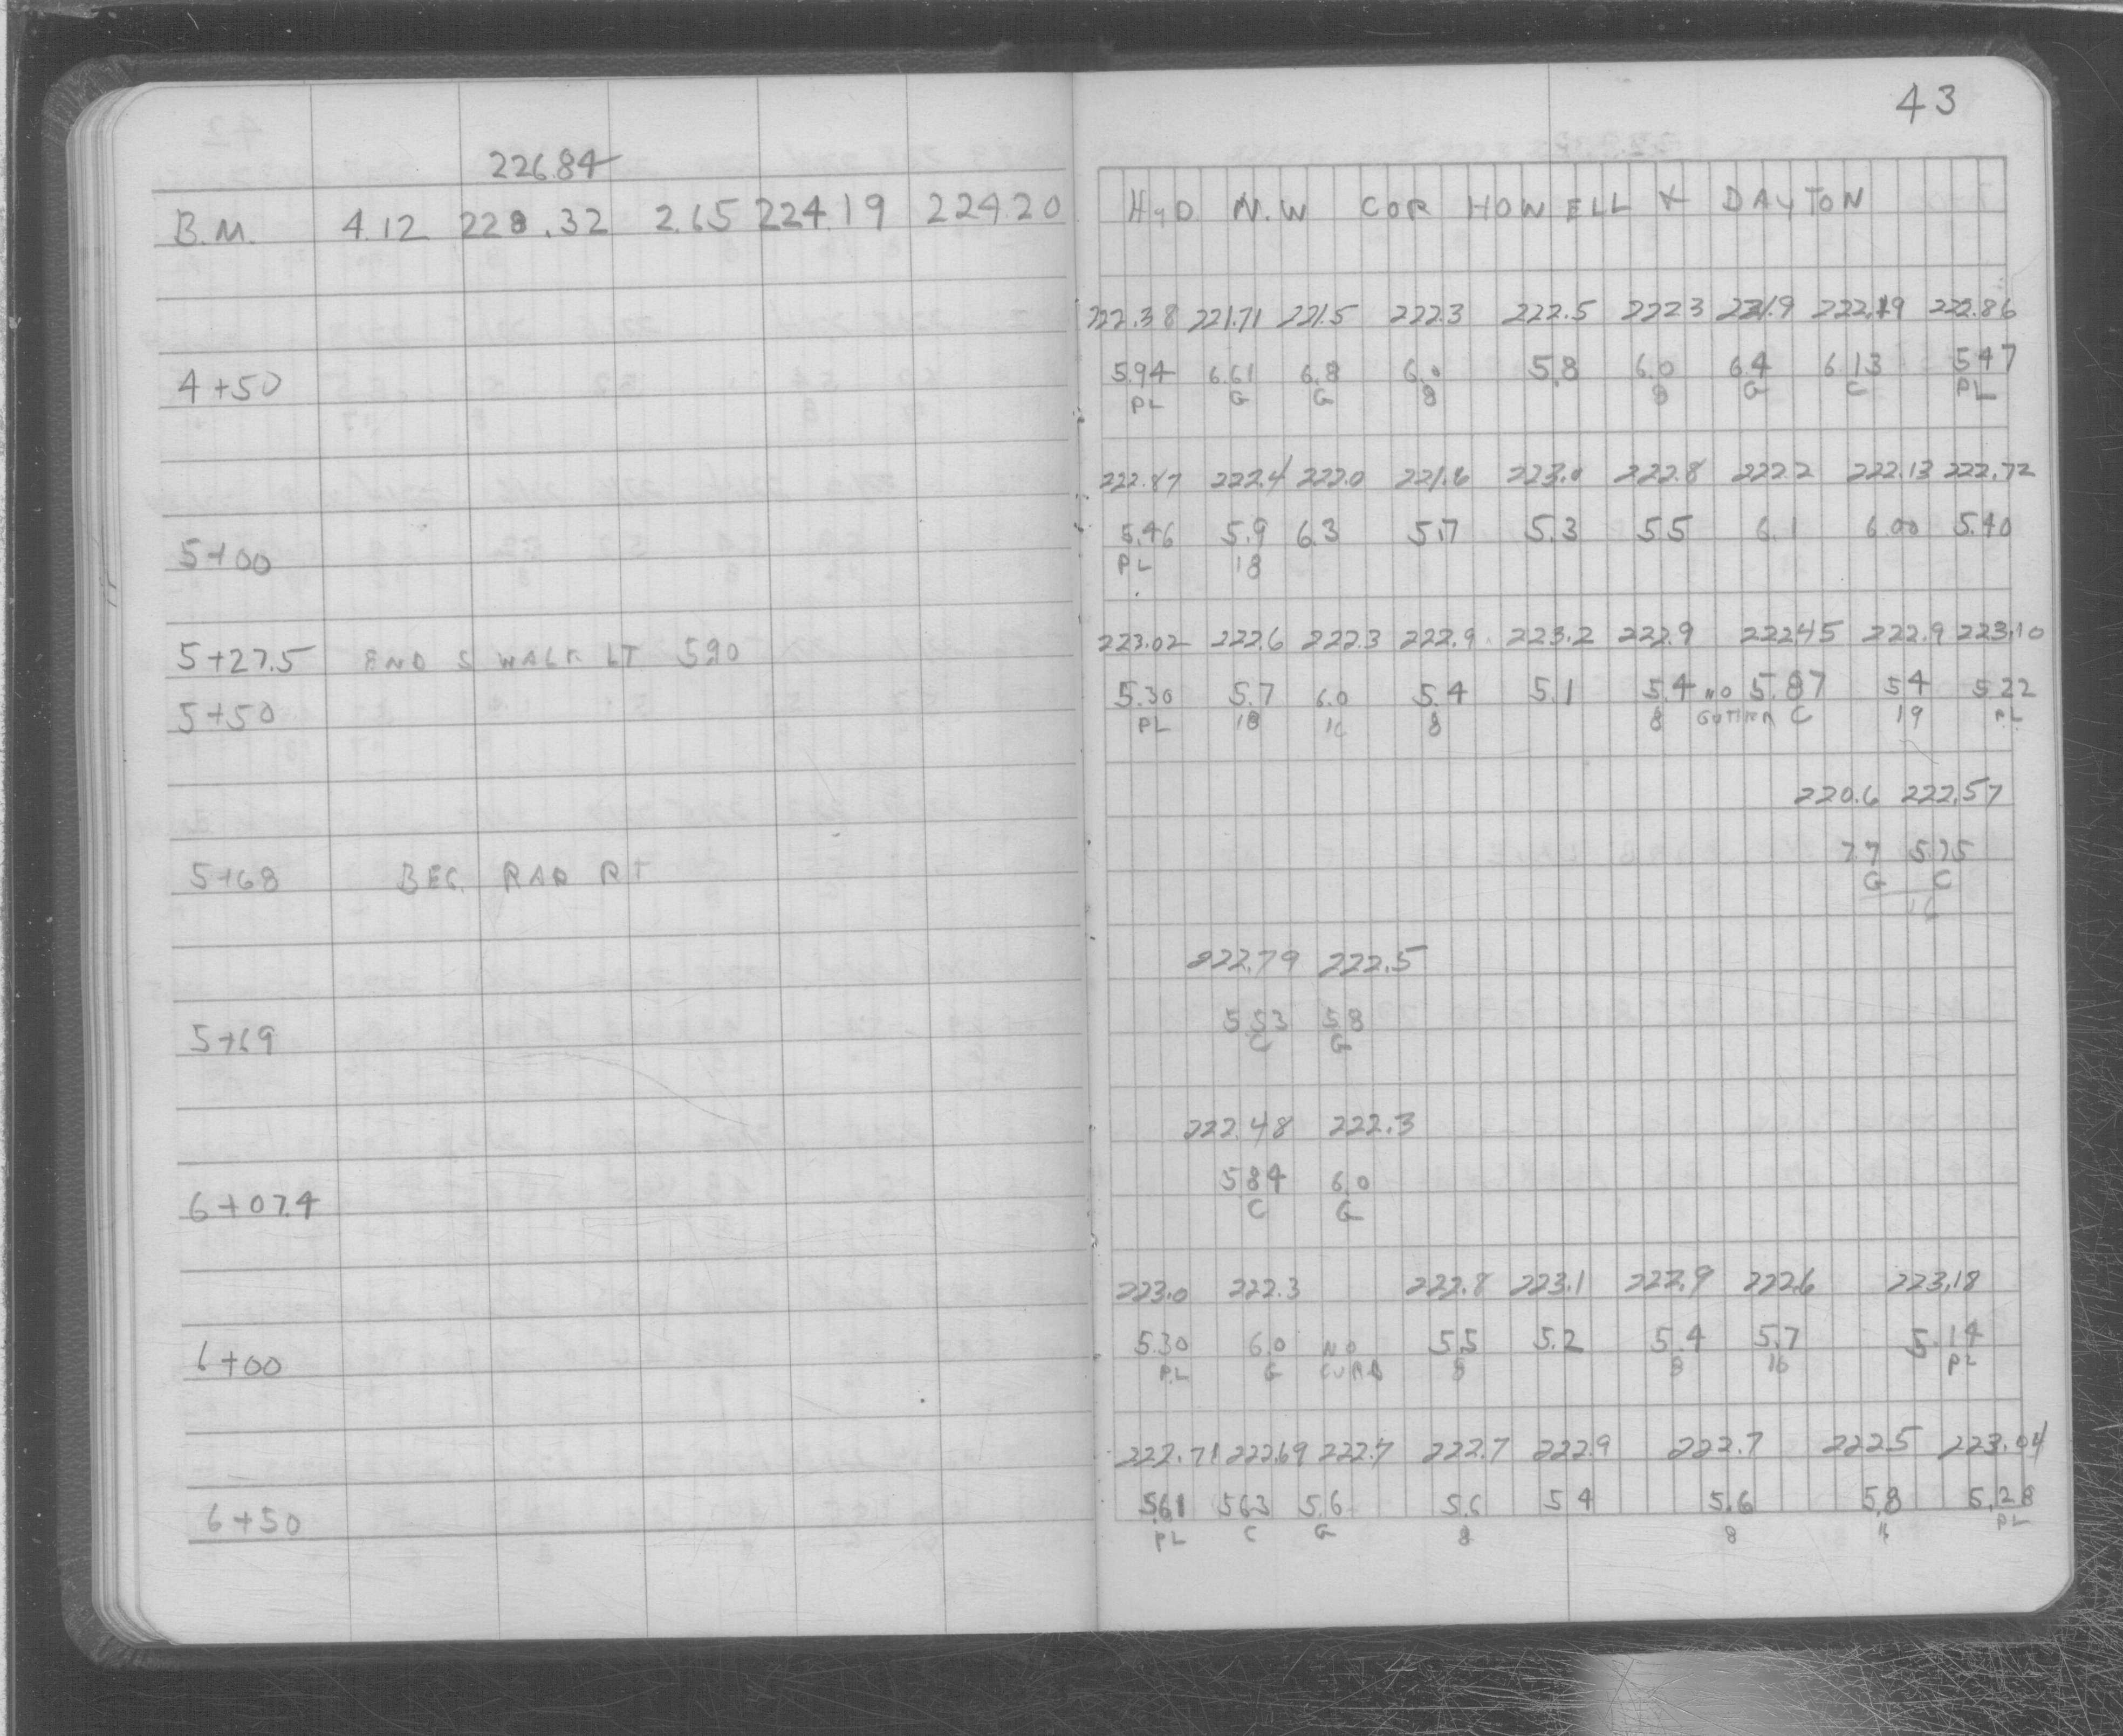 43
226.84
B.M. 4.12 228.32 2.65 224.19 224.20 HyD N.W COR HOWELL & DAYTON
222.38 221.71 221.5 222.3 222.5 222.3 221.9 222.19 222.86
4+50 5.94 6.61 6.8 6.0 5.8 6.0 6.4 6.13 5.47
PL G G 8 8 G C PL
222.87 222.4 222.0 221.6 223.0 222.8 222.2 222.13 222.72
5+00 5.46 5.9 6.3 5.7 5.3 5.5 6.1 6.00 5.40
PL 18
5+27.5 END S WALK LT 5.20 223.02 222.6 222.3 222.9 223.2 222.9 222.45 222.9 223.10
5+50 5.30 5.7 6.0 5.4 5.1 5.4 NO 5.87 5.4 5.22
PL 18 16 8 8 GUTTER C 19 PL
220.6 222.57
5+68 BEG. RAD RT 7.7 5.75
G C
16
222.79 222.5
5+69 5.53 5.8
C G
222.48 222.3
6+07.4 5.84 6.0
C G
223.0 222.3 222.8 223.1 222.9 222.6 223.18
6+00 5.30 6.0 NO 5.5 5.2 5.4 5.7 5.14
PL G CURB 8 8 16 PL
222.71 222.69 222.7 222.7 222.9 222.7 222.5 223.04
6+50 5.61 5.63 5.6 5.6 5.4 5.6 5.8 5.28
PL C G 8 8 16 PL